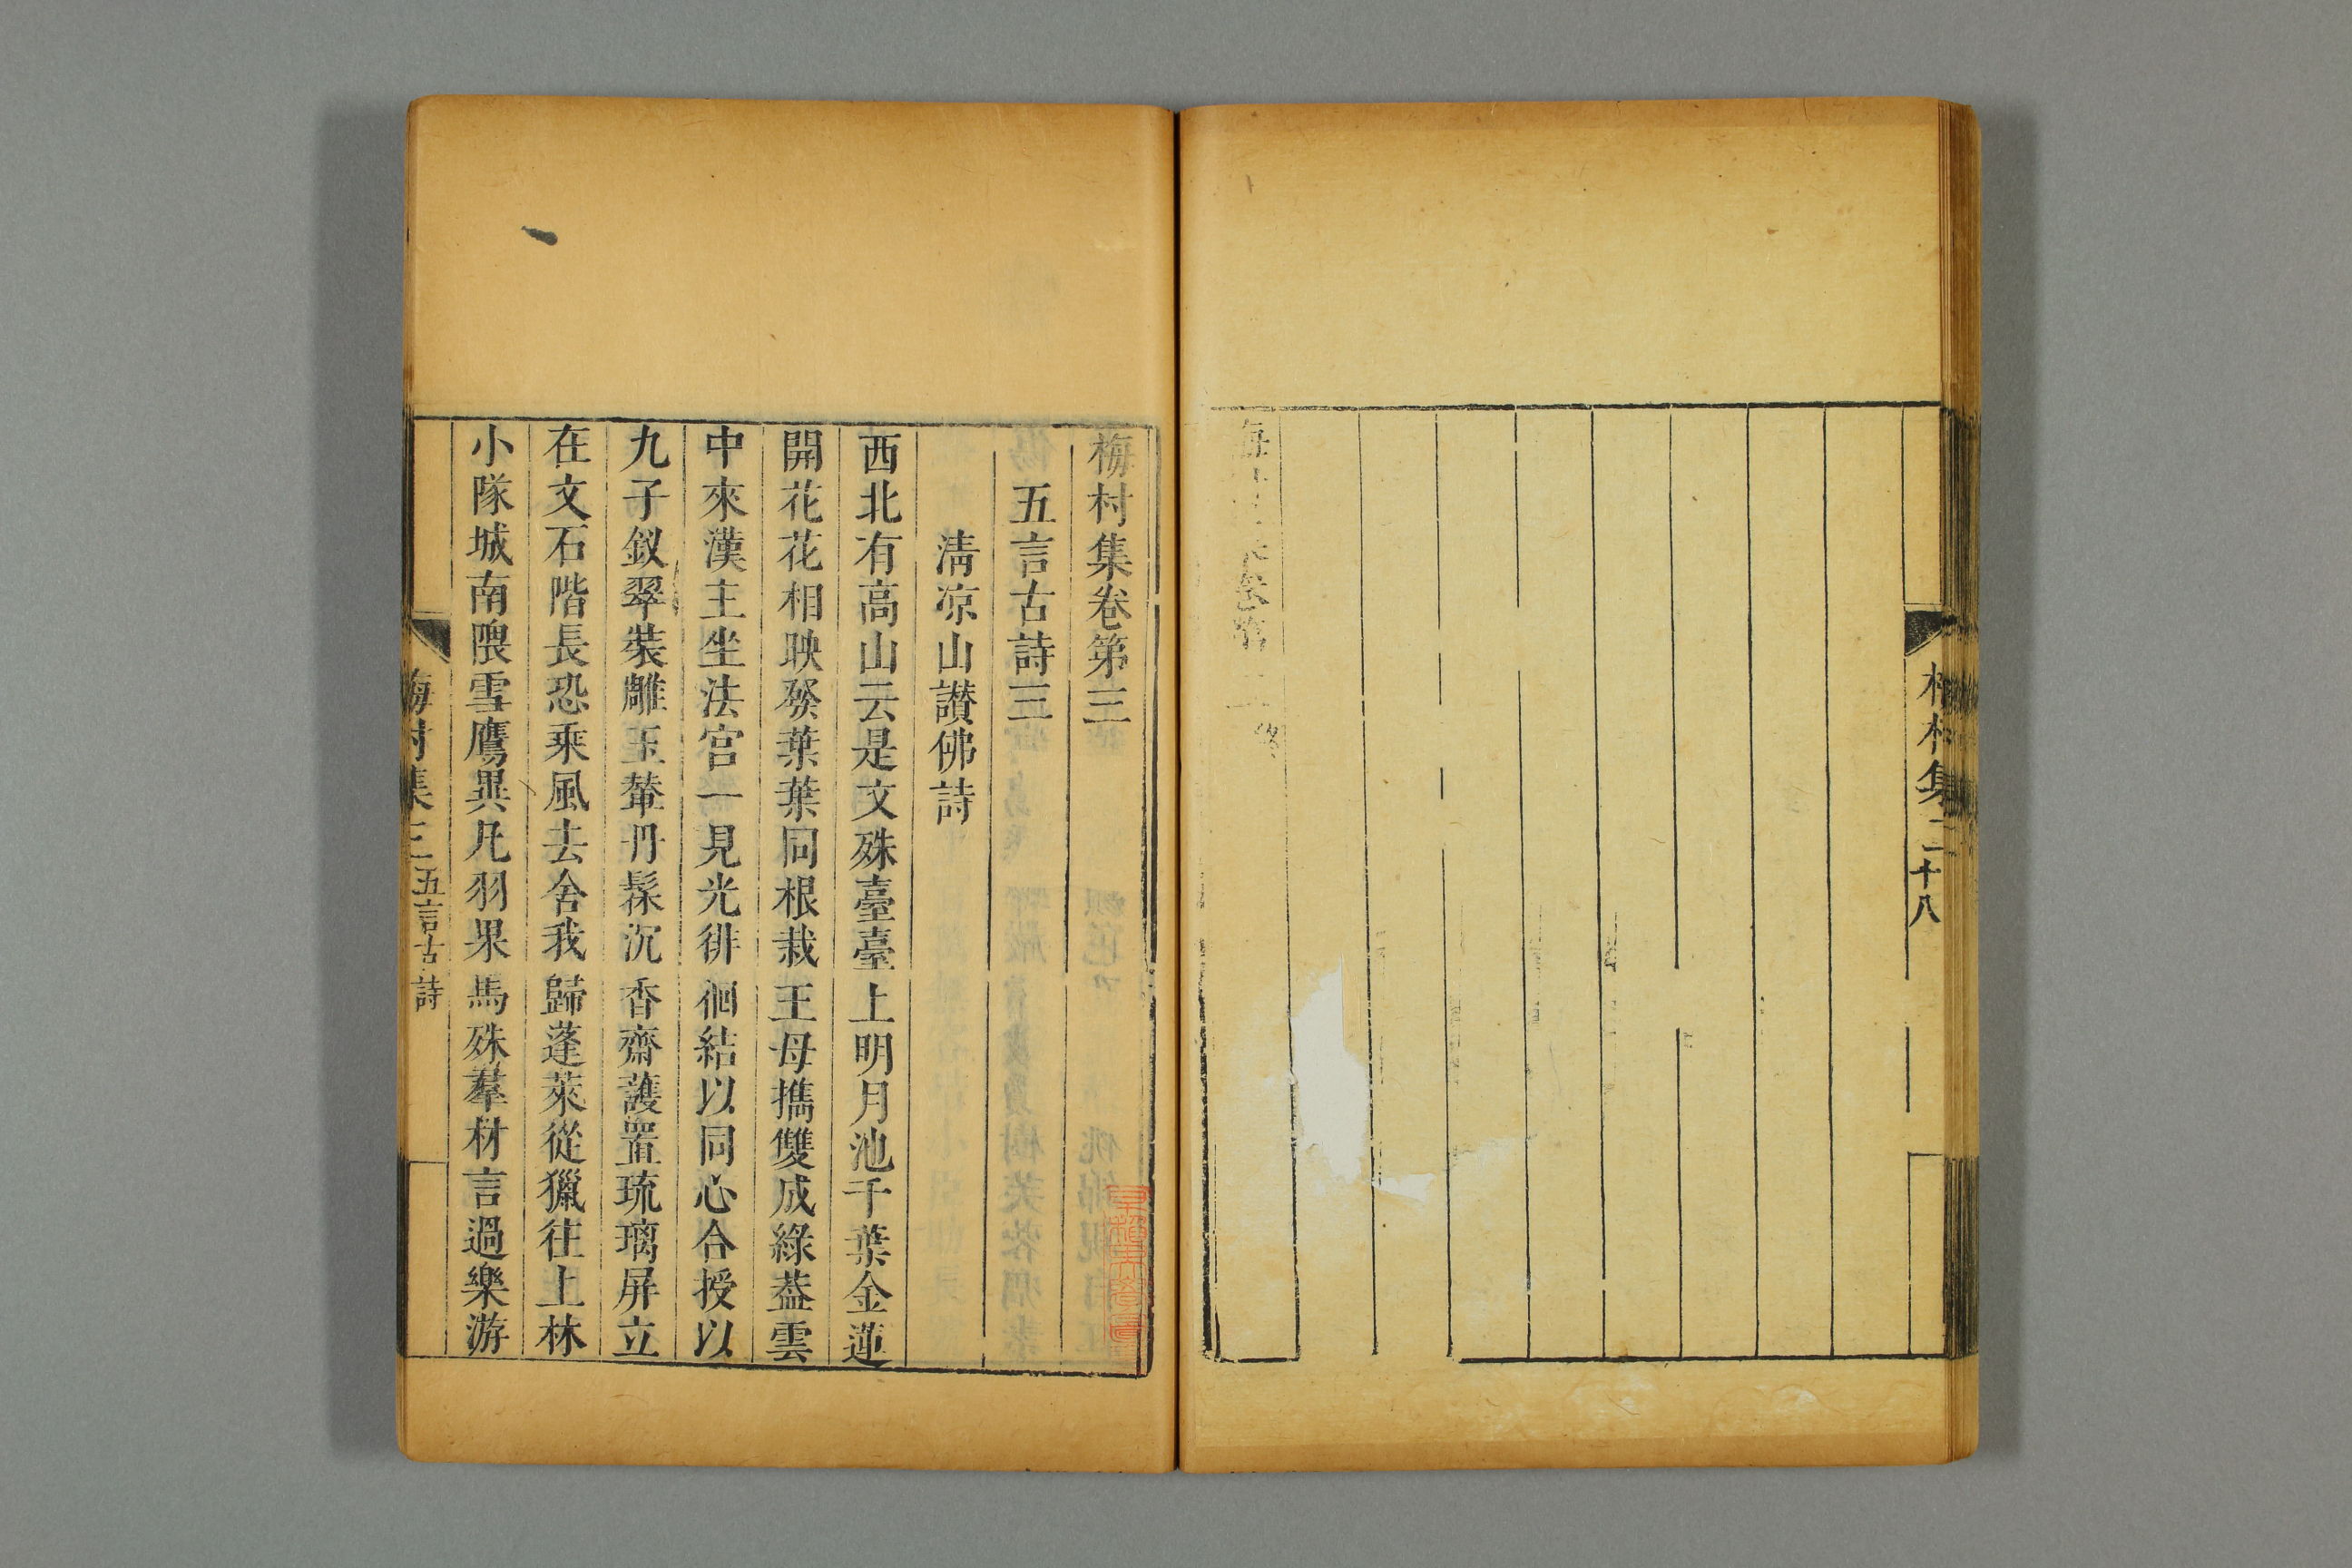 梅村集二 十八
梅村集卷第三
五言古詩三
清凉山讃佛詩
西北有高山云是文殊臺臺上明月池千葉金蓮
開花花相映發葉葉同根栽王母攜雙成綠葢雲
中來漢主坐法宮一見光徘徊結以同心合授以
九子釵翠裝雕玉輦丹髹沉香齋護置琉璃屏立
在文石階長恐乘風去舍我歸蓬萊從獵往上林
小隊城南隈雪鷹異凡羽果馬殊羣材言過樂游
梅村集三 五言古詩